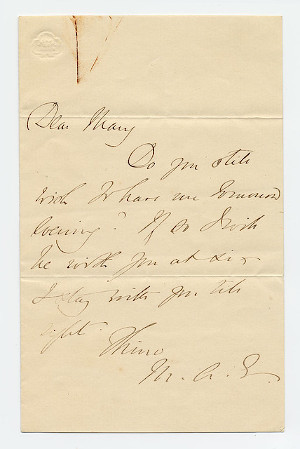 Dear Mary
Do you still
wish to have me tomorrow
evening? If so I will
be with you at six
& stay with you till
eight.
Thine
M. A. E.